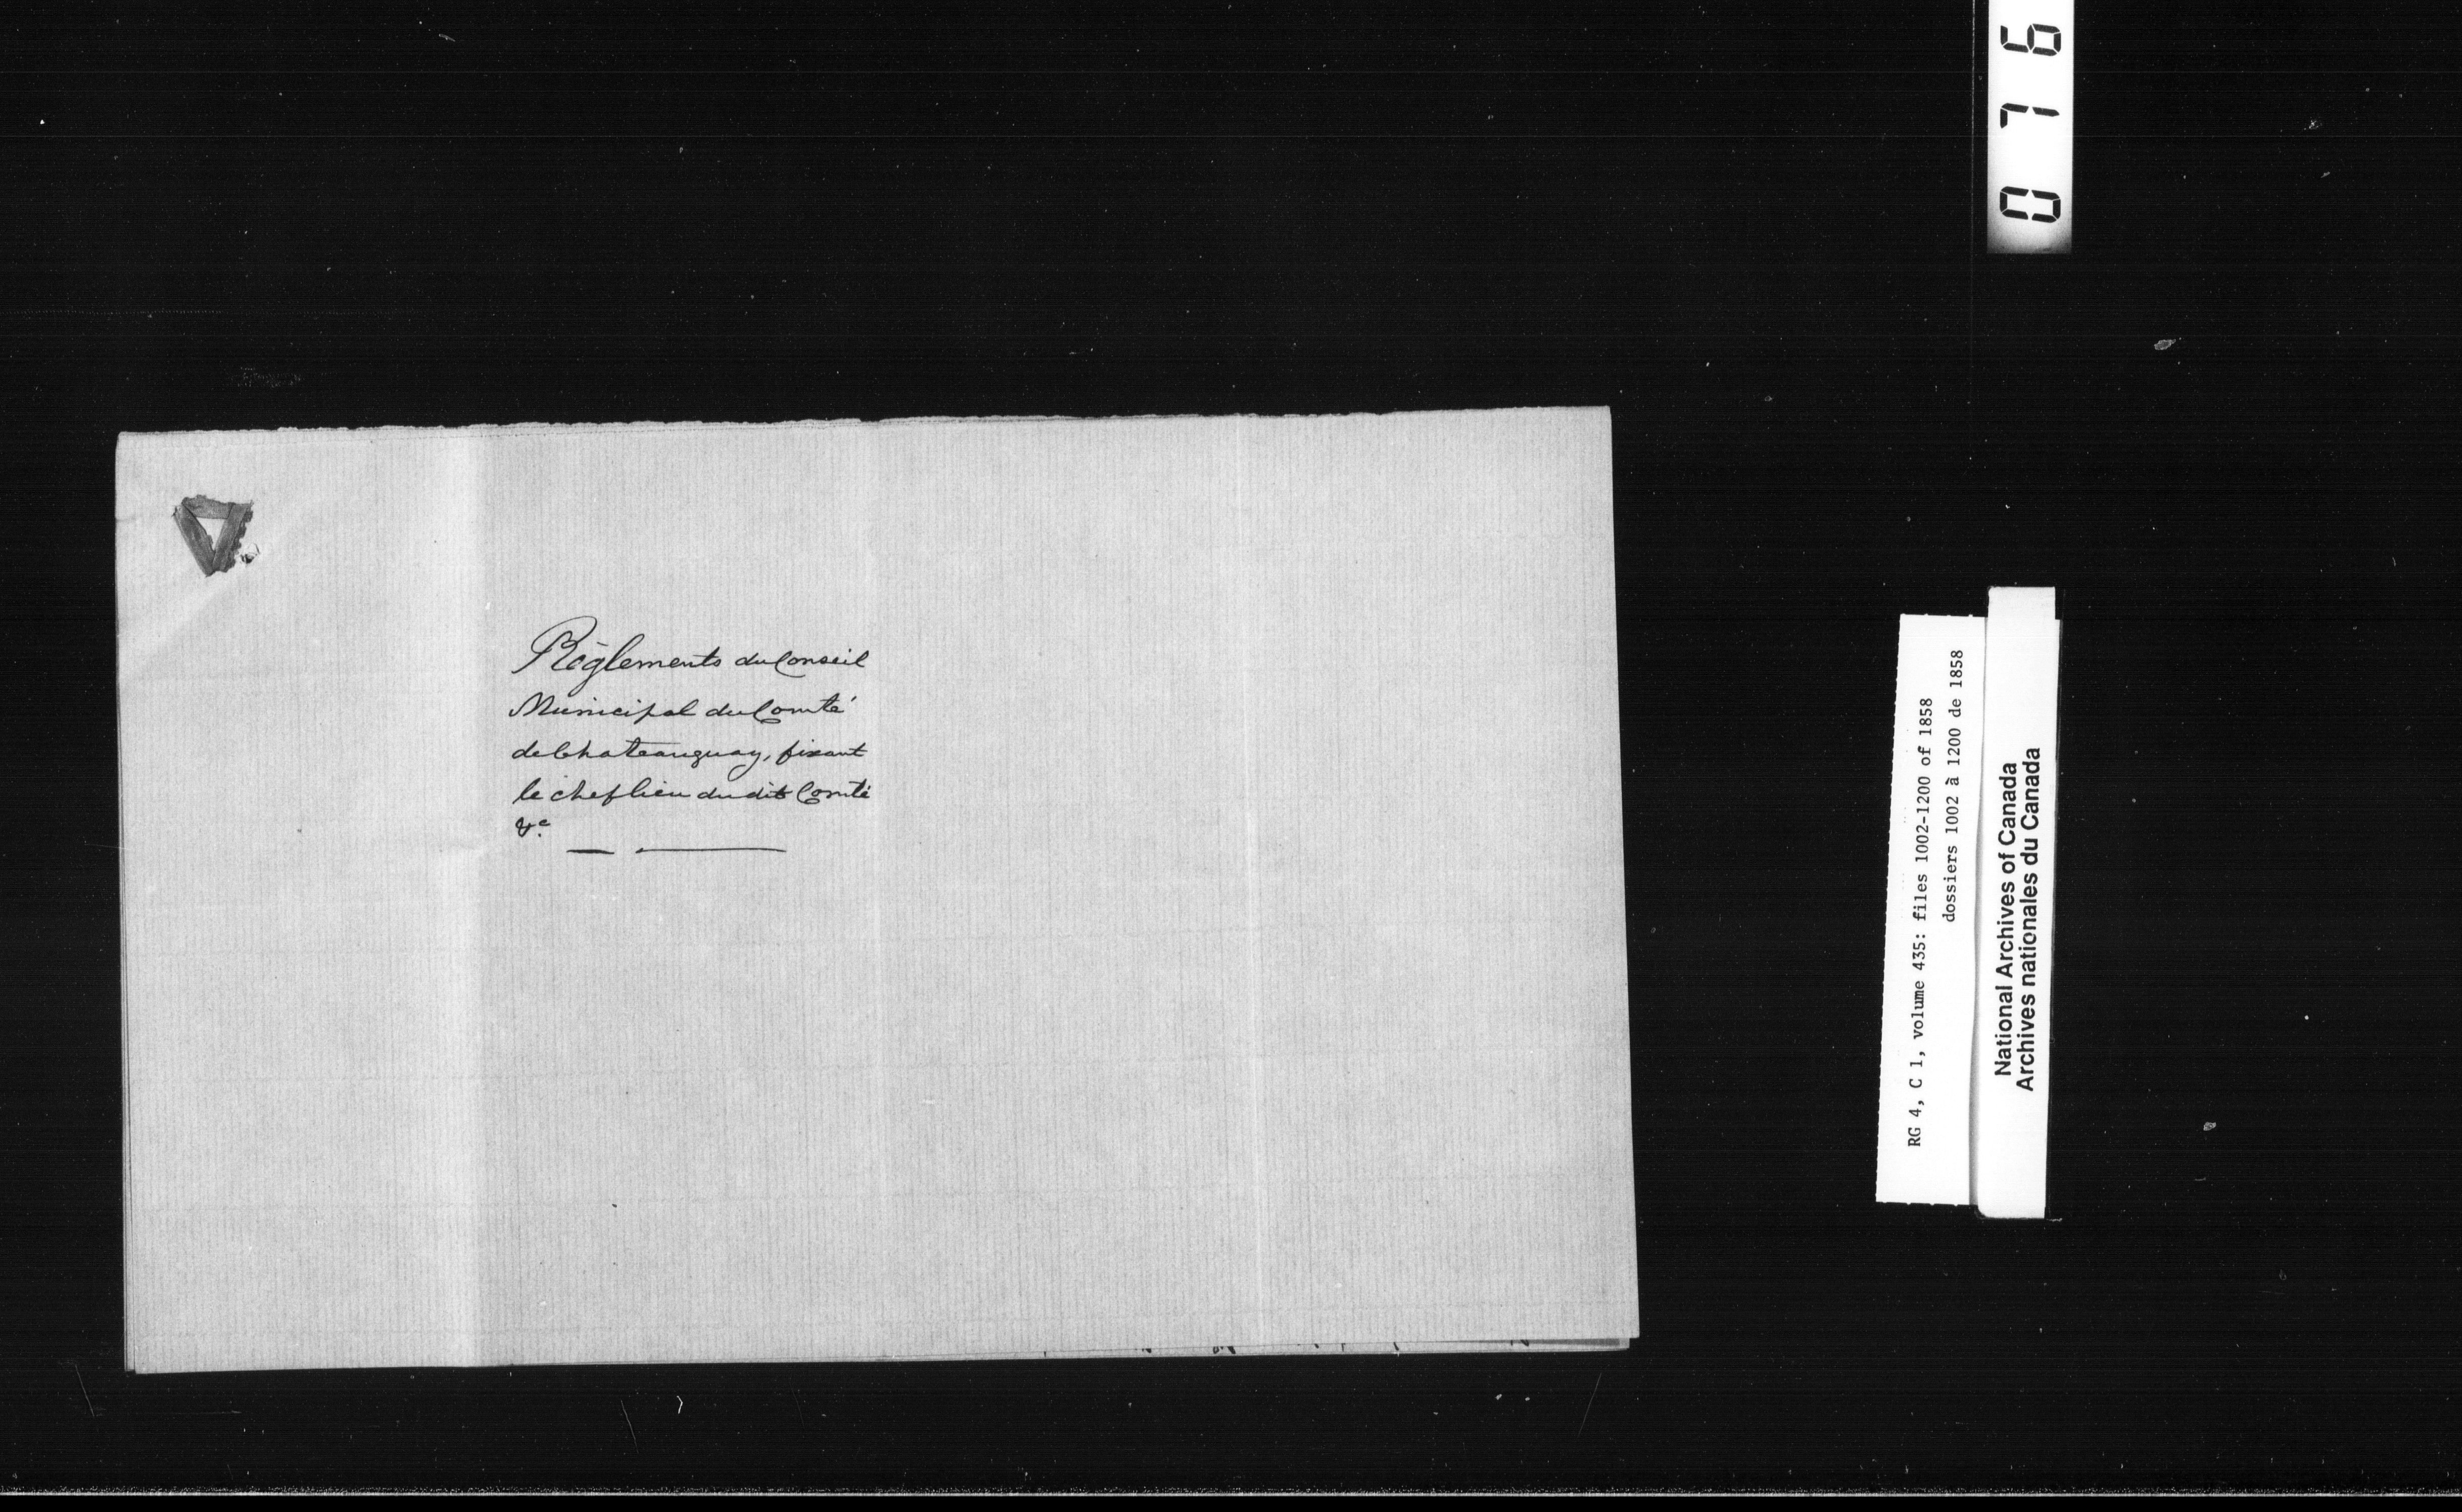 Règlements du Conseil
Municipal du Comté
de Chateauguay, fixant
le chef lieu du dit Comté
&c.
0 7 6
RG 4, C 1, volume 435: files 1002-1200 of 1858
dossiers 1002 à 1200 de 1858
National Archives of Canada
Archives nationales du Canada